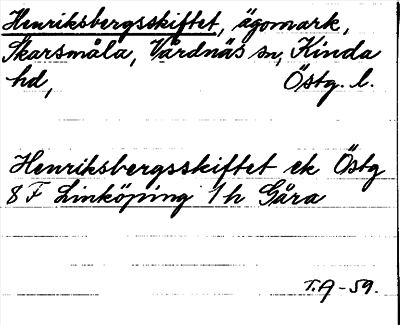 Henriksbergsskiftet, ägomark,
Skarsmåla, Vårdnäs sn, Kinda
hd, Östg. l.
Henriksbergsskiftet ek Östg
8 F Linköping 1 h Gåra
T.A-59.